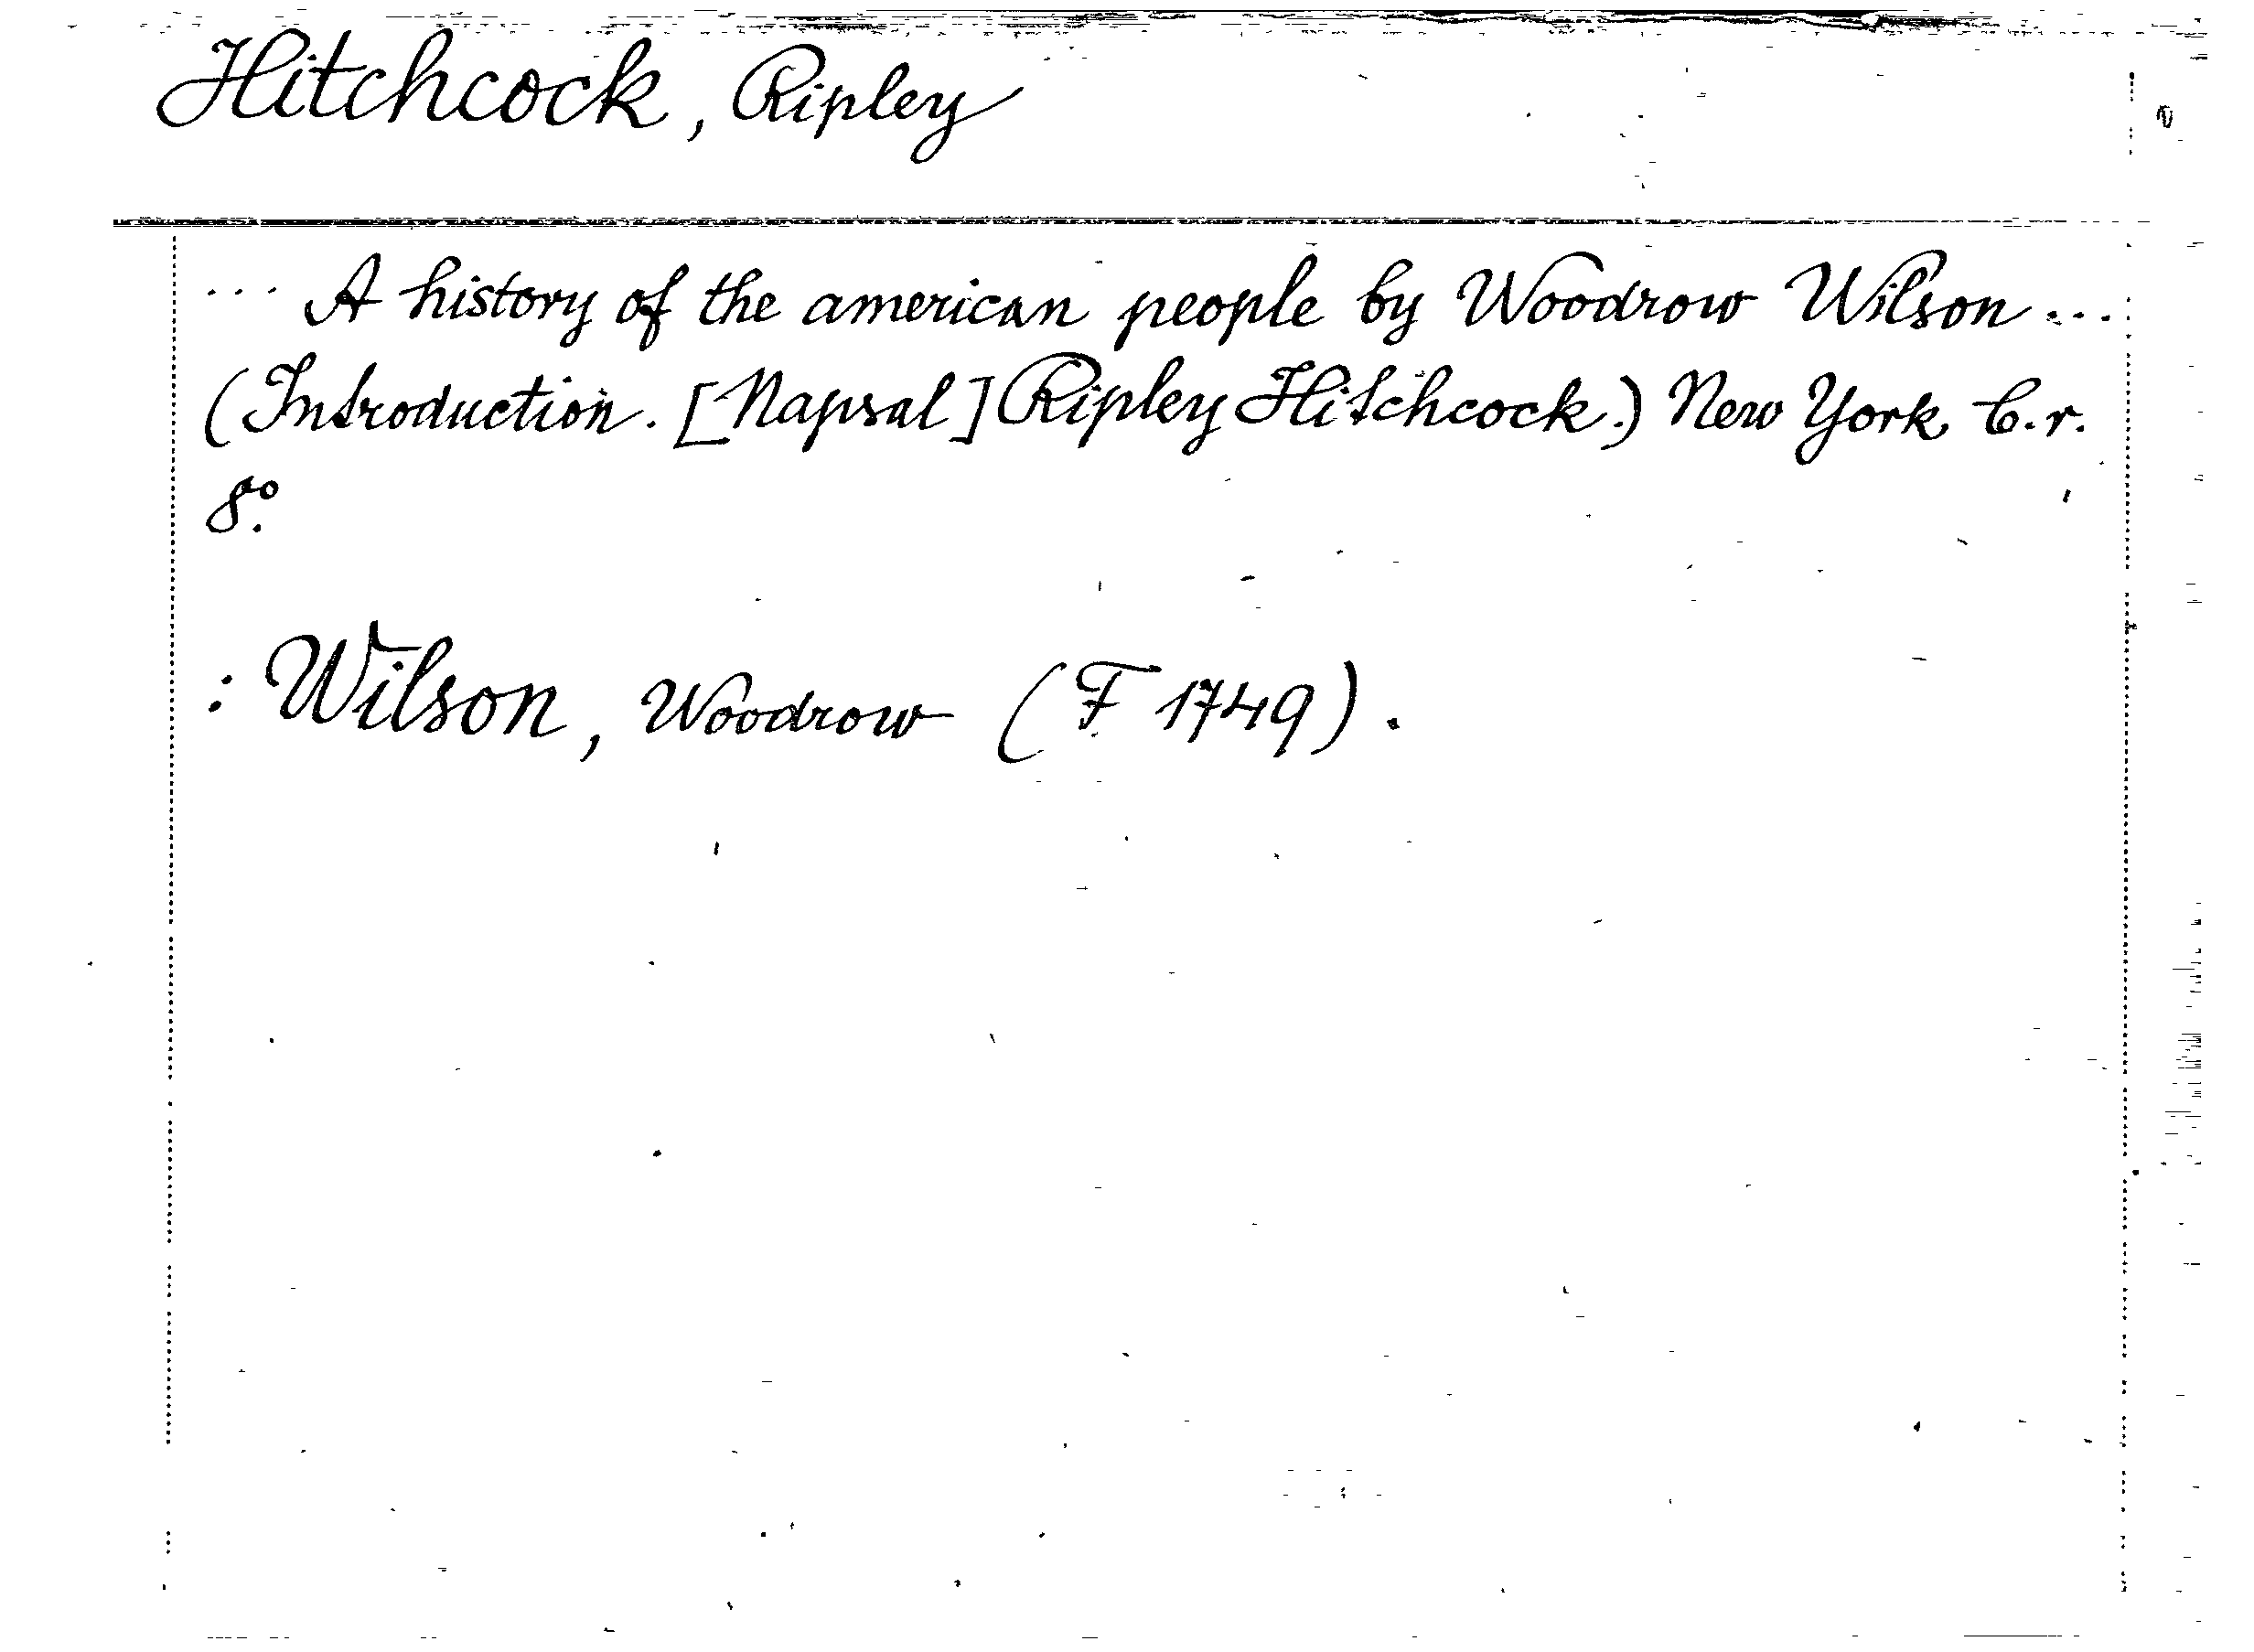 Hitchcock, Ripley
... A history of the american people by Woodrow Wilson ...
(Introduction. [Napsal] Ripley Hitchcock.) New York b.r.
8°.
: Wilson, Woodrow (F 1749).